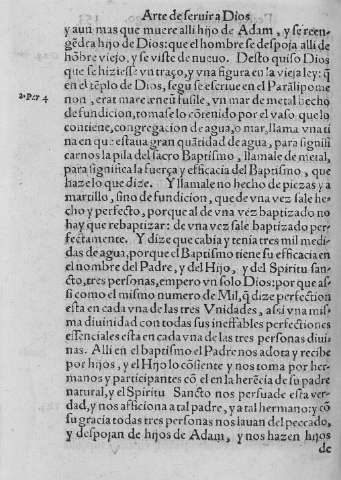 Arte de seruir a Dios
y aun mas que muere alli hijo de Adam, y se reen-
gẽdra hijo de Dios: que el hombre se despoja alli de
hõbre viejo, y se viste de nueuo. Desto quiso Dios
que se hiziesse vn traço, y vna figura en la vieja ley: q̃
en el tẽplo de Dios, segũ se escriue en el Paralipome
2. Par 4
non, erat mare æneũ fusile, vn mar de metal hecho
de fundicion, tomase lo cõtenido por el vaso que lo
contiene, congregacion de agua, o mar, llama vna ti
na en que estaua gran quãtidad de agua, para signifi
carnos la pila del sacro Baptismo, llamale de metal,
para significa la fuerça y efficacia del Baptismo, que
haze lo que dize. Y llamale no hecho de pieças y a
martillo, sino de fundicion, que de vna vez sale he-
cho y perfecto, porque al de vna vez baptizado no
hay que rebaptizar: de vna vez sale baptizado per-
fectamente. Y dize que cabia y tenia tres mil medi
das de agua, porque el Baptismo tiene su efficacia en
el nombre del Padre, y del Hijo, y del Spiritu san-
cto, tres personas, empero vn solo Dios: por que as-
si como el mismo numero de Mil, q̃ dize perfection
esta en cada vna de las tres Vnidades, assi vna mis-
ma diuinidad con todas sus ineffables perfectiones
essenciales esta en cada vna de las tres personas diui-
nas. Alli en el baptismo el Padre nos adota y recibe
por hijos, y el Hijo lo cõsiente y nos toma por her-
manos y participantes cõ el en la herẽcia de su padre
natural, y el Spiritu Sancto nos persuade esta ver-
dad, y nos afficiona a tal padre, y a tal hermano: y cõ
su gracia todas tres personas nos lauan del peccado,
y despojan de hijos de Adam, y nos hazen hijos
de